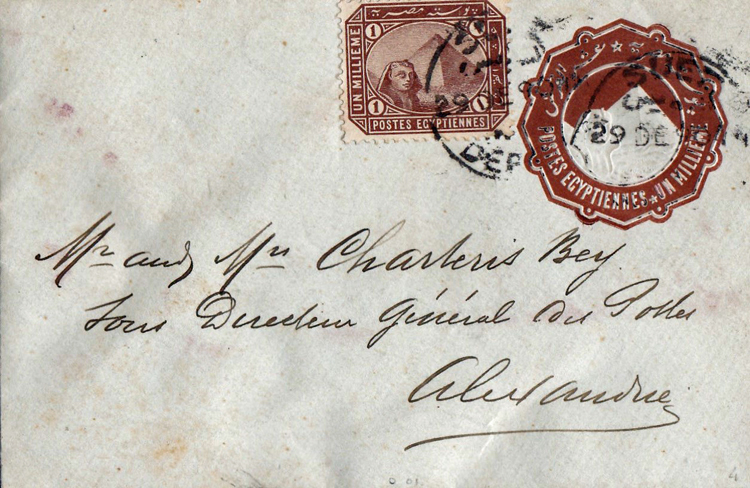 بوستة مصرية
UN MILLIEME
1 1
1 1
POSTES EGYPTIENNES
POSTES EGYPTIENNES ★ UN MILLIEME
SUEZ
29 DE
DEP
29 DE 98
Mr and Mrs Charteris Bey
Sous Directeur Général des Postes
Alexandrie
4